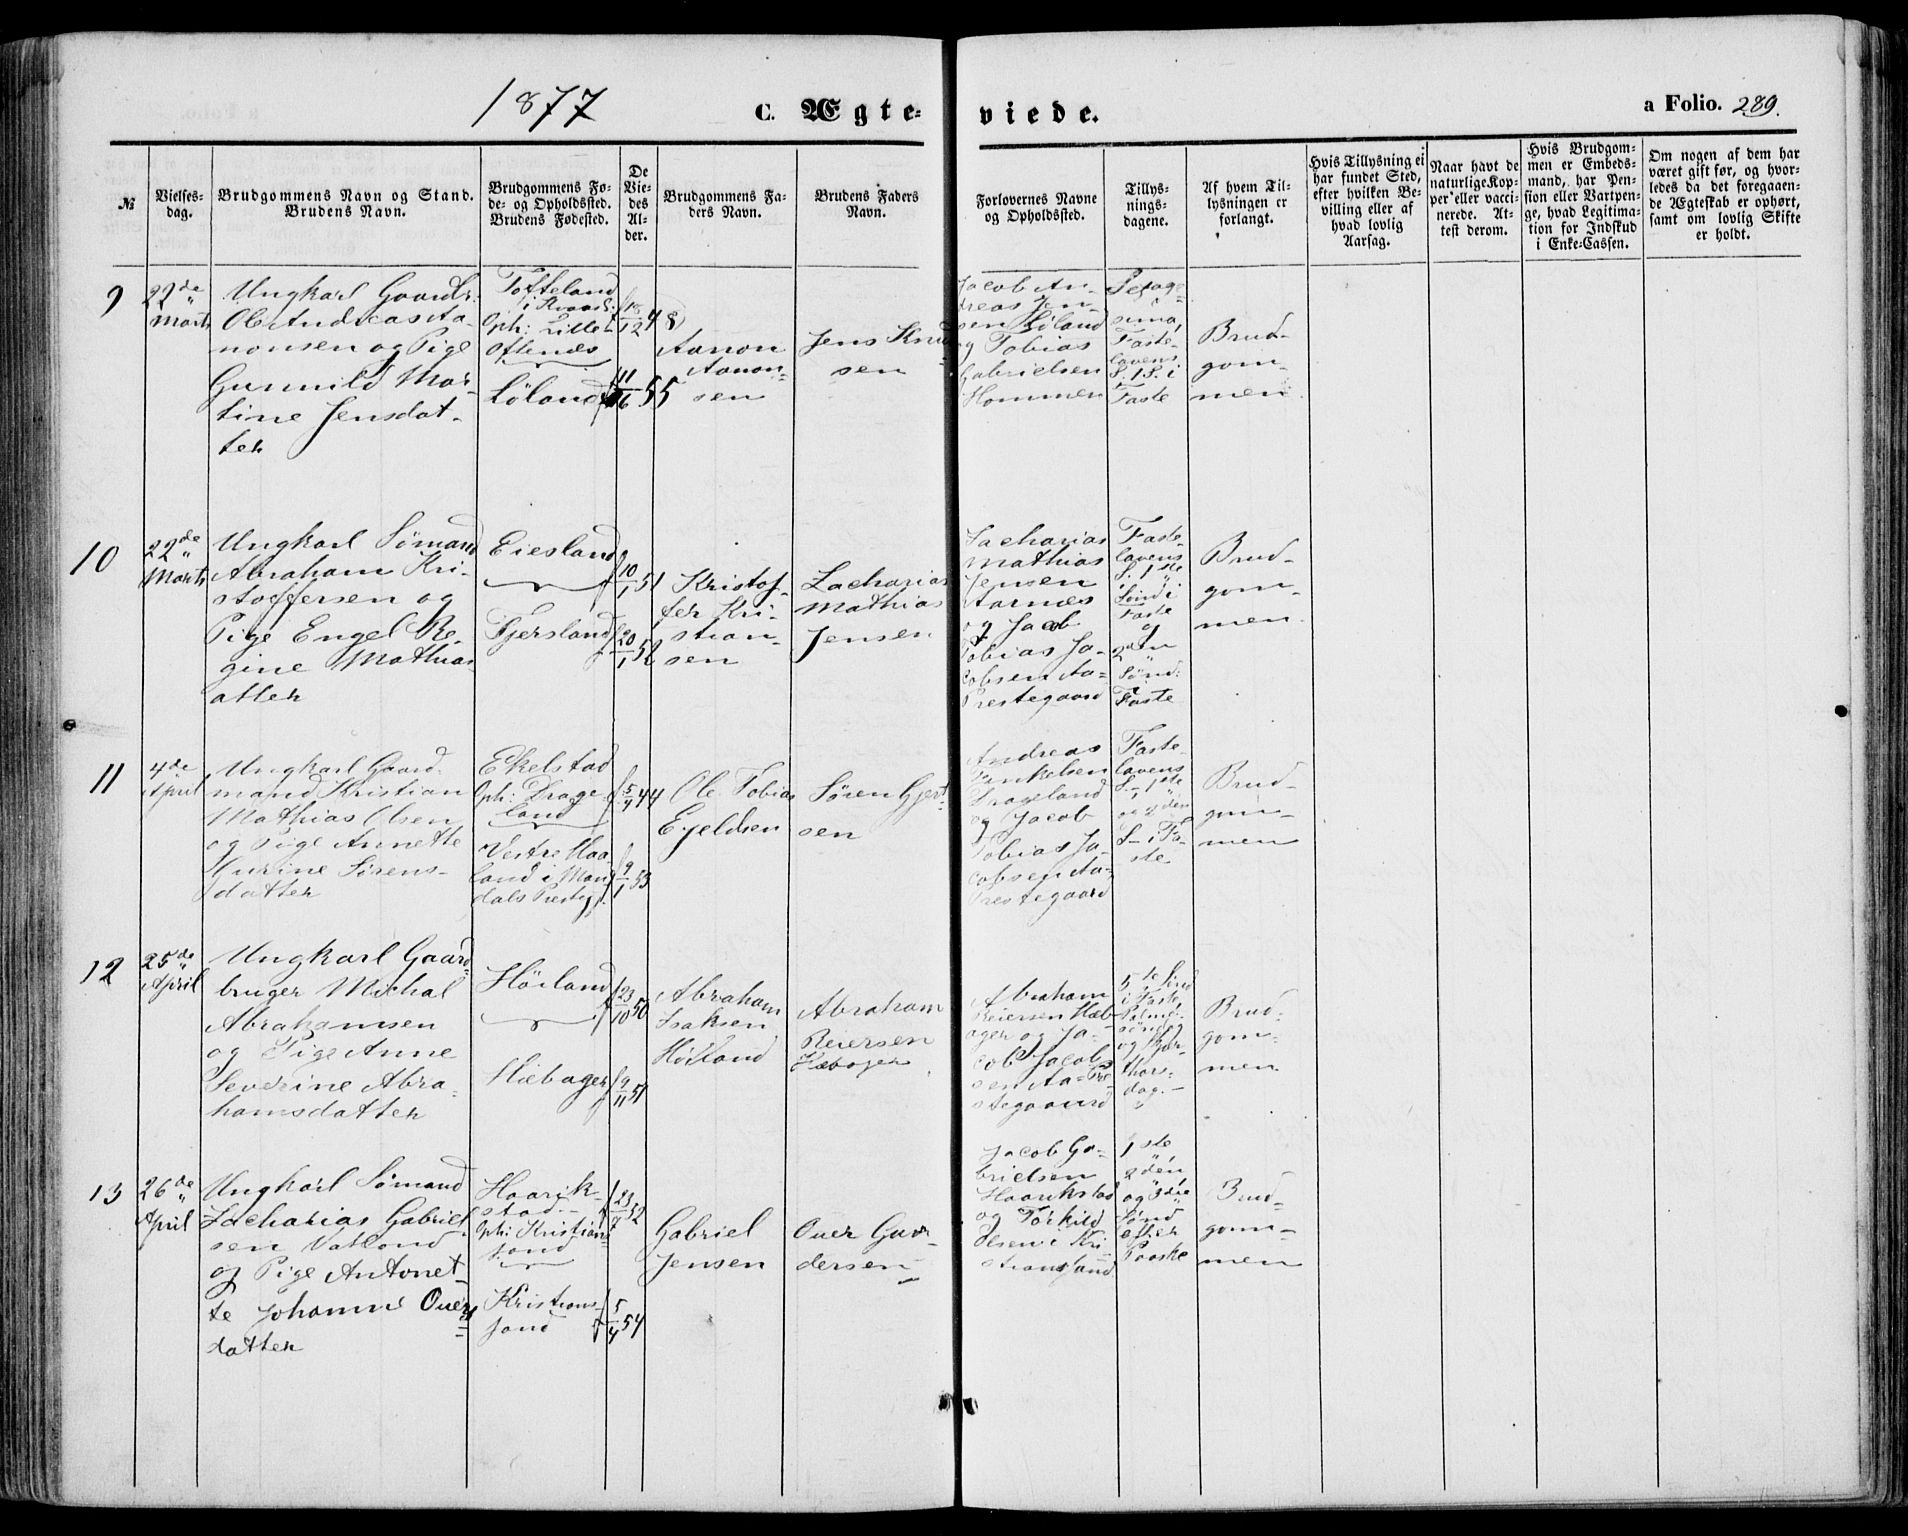 1877
C. Ægte-
viede.
a Folio. 289.
№
Vielses-
dag.
Brudgommens Navn og Stand.
Brudens Navn.
Brudgommens Fø-
de- og Opholdssted.
Brudens Fødested.
De
Vie-
des
Al-
der.
Brudgommens Fa-
ders Navn.
Brudens Faders
Navn.
Forlovernes Navne
og Opholdssted.
Tillys-
nings-
dagene.
Af hvem Til-
lysningen er
forlangt.
Hvis Tillysning ei
har fundet Sted,
efter hvilken Be-
villing eller af
hvad lovlig
Aarsag.
Naar havt de
naturlige Kop-
per eller vacci-
nerede. At-
test derom.
Hvis Brudgom-
men er Embeds-
mand, har Pen-
sion eller Vartpen-
ge, hvad Legitima-
tion for Indskud
i Enke-Cassen.
Om nogen af dem har
været gift før, og hvor-
ledes da det foregaaen-
de Ægteskab er ophørt,
samt om lovlig Skifte
er holdt.
9
22de
Marts
Ungkarl Gaardbr.
Ole Andreas Aa-
nonsen og Pige
Gunnild Mar-
tine Jensdat-
ter
Tofteland
Oph: Lille-
Oftenæs
Løland
18/12 48
11/6 55
Aanon
Aanon-
sen
Jens Knud
sen
Jacob An-
dreas Jen-
sen Løland
og Tobias
Gabrielsen
Hommen
Sexage-
sima,
Faste-
lavens
S. 1 S. i
Faste
Brud-
gom-
men.
10
22de
Marts
Ungkarl Sømand
Abraham Kri-
stoffersen og
Pige Engel Re-
gine Mathias
atter
Eiesland
Fjersland
10/1 51
20/1 52
Kristof-
fer Kri-
stian-
sen
Zacharias
Mathias
Jensen
Zacharias
Mathias
Jensen
Aarnæs
og Jacob
Tobias Ja-
cobsen Aa-
Prestegaard
Faste-
lavens
S. 1ste
Sønd i
Faste
og
2den
Sønd:
Faste
Brud-
gom-
men.
11
4de
April
Ungkarl Gaard-
mand Kristian
Mathias Olsen
og Pige Annette
Gurine Sørens-
datter
Ekelstad
Oph: Drage-
land
Vestre Haa-
land i Man-
dals Prestegj.
5/4 44
9/1 53
Ole Tobias
Ejeldsen
Søren Gjert-
sen
Andreas
Tønkelsen
Drageland
og Jacob
Tobias Ja-
cobsen Aa-
Prestegaard
Faste-
lavens
S. 1ste
og 2den
S- i Fa-
ste
Brud-
gom-
men
12
25de
April
Ungkarl Gaard-
bruger Michal
Abrahamsen
og Pige Anne
Severine Abra-
hamsdatter
Høiland
Hæbager
23/10 50
9/11 51
Abraham
Isaksen
Høiland
Abraham
Reiersen
Hæbager
Abraham
Reiersen Hæb-
ager og Ja-
cob Jacob-
sen Aa-Pre
stegaard
5te Sønd
i Faste,
Palme-
sønd
og Skjær-
thors-
dag.-
Brud-
gom-
men.
13
26de
April
Ungkarl Sømand
Zacharias Gabriel-
sen Vatland
og Pige Antonet-
te Johanne Ouers
datter
Haarik-
stad -
Oph: Kristian-
sand
Kristians-
sand
23/7 52
5/4 54
Gabriel
Jensen
Ouer Gun-
dersen
Jacob Ga-
brielsen
Haarikstad
og Torkild
Olsen i Kri-
stiansand
1ste
2den,
og 3die
Sønd
efter
Paaske
Brud-
gom-
men